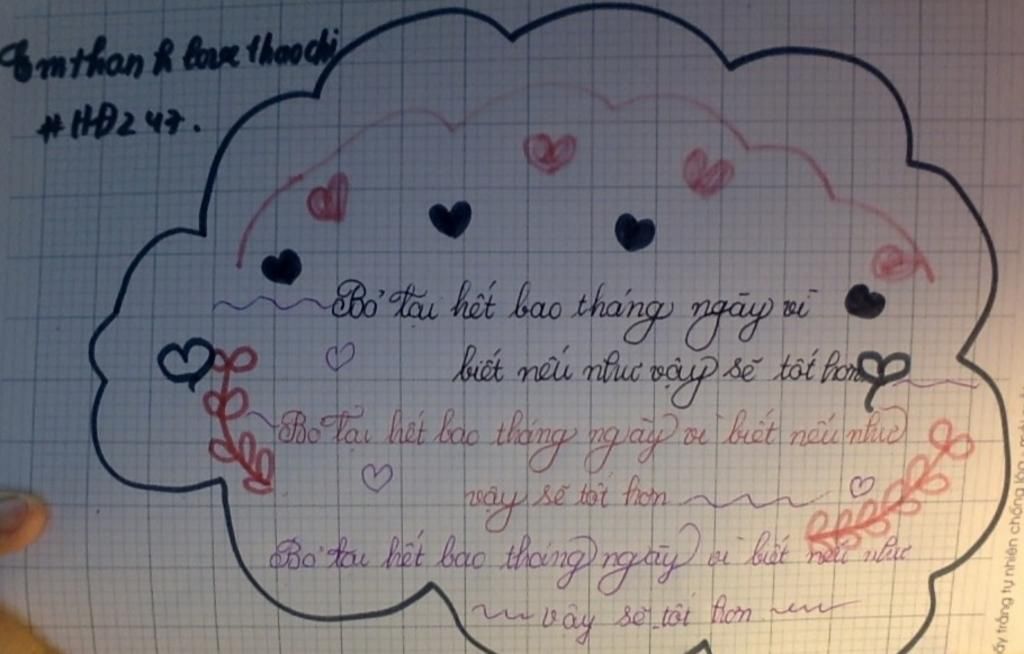 Emthanh love thaochi
#HĐ247.
Bỏ tại hết bao tháng ngày vì
biết nếu như vậy sẽ tốt hơn
Bỏ tại hết bao tháng ngày vì biết nếu như
vậy sẽ tốt hơn
Bỏ tại hết bao tháng ngày vì biết nếu như
vậy sẽ tốt hơn
ấy trắng tự nhiên chống lóa